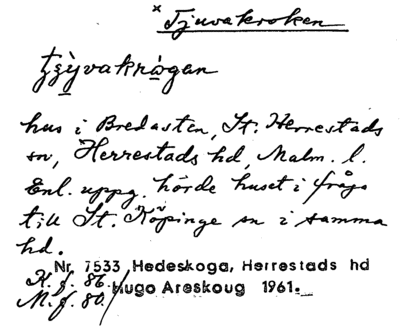 × Tjuvakroken
tʒy̱vakrå̱gan
hus i Bredasten, St. Herrestads
sn, Herrestads hd, Malm. l.
Enl. uppg. hörde huset i fråga
till St. Köpinge sn i samma
hd.
Nr 7533 Hedeskoga, Herrestads hd
K. f. 86.
M. f. 80. / Hugo Areskoug 1961.